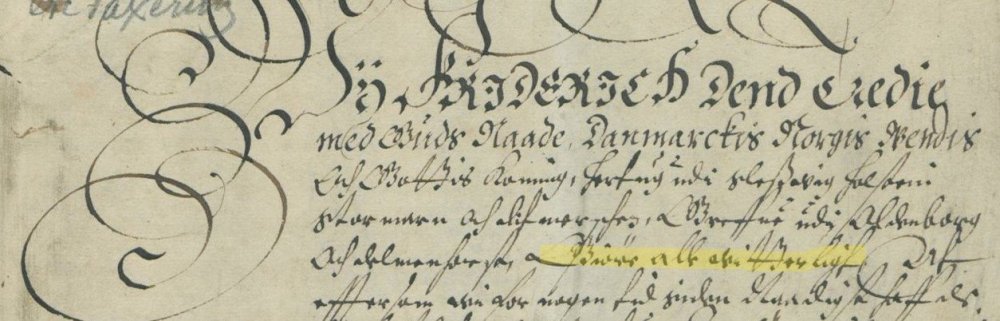 Wÿ FRIDERICH Dend Tredie
med Guds Naade, Danmarckis Norgis Wendis
Och Gottis Koning, Hertug udi Slesswig Holsten
Stormarn och Ditmerschen, Greffue udi Oldenborg
Och Delmenhorst, Giøre alle witterligt At
effter som wi for nogen tid siden Naadigst haff